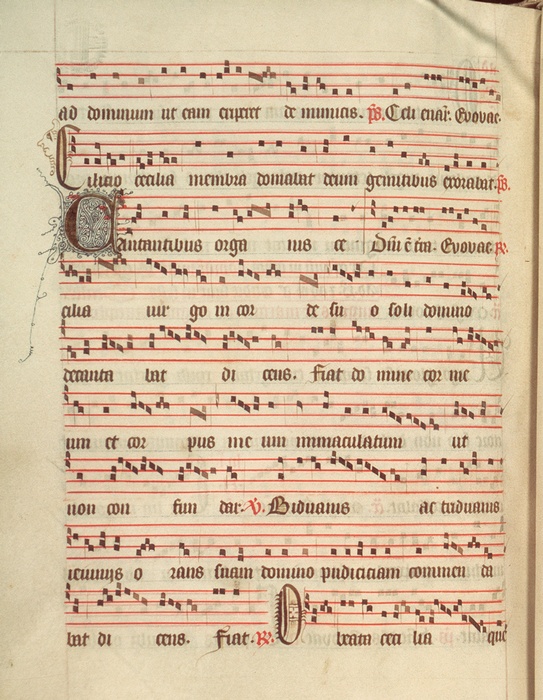 ad dominum ut eam eriperet de inimicis. ps. Celi enar. Evovae.
Cilicio cecilia membra domabat deum gemitibus exorabat. ps.
Cantantibus orga nis ce Dni e tra. Evovae. R.
cilia vir go in cor de su o soli domino
decanta bat di cens. Fiat do mine cor me
um et cor pus me um immaculatum ut
non con fun dar. V. Biduanis ac triduanis
ieiuniis o rans suam domino pudiciciam commen da
bat di cens. Fiat. R. O beata ceci lia que